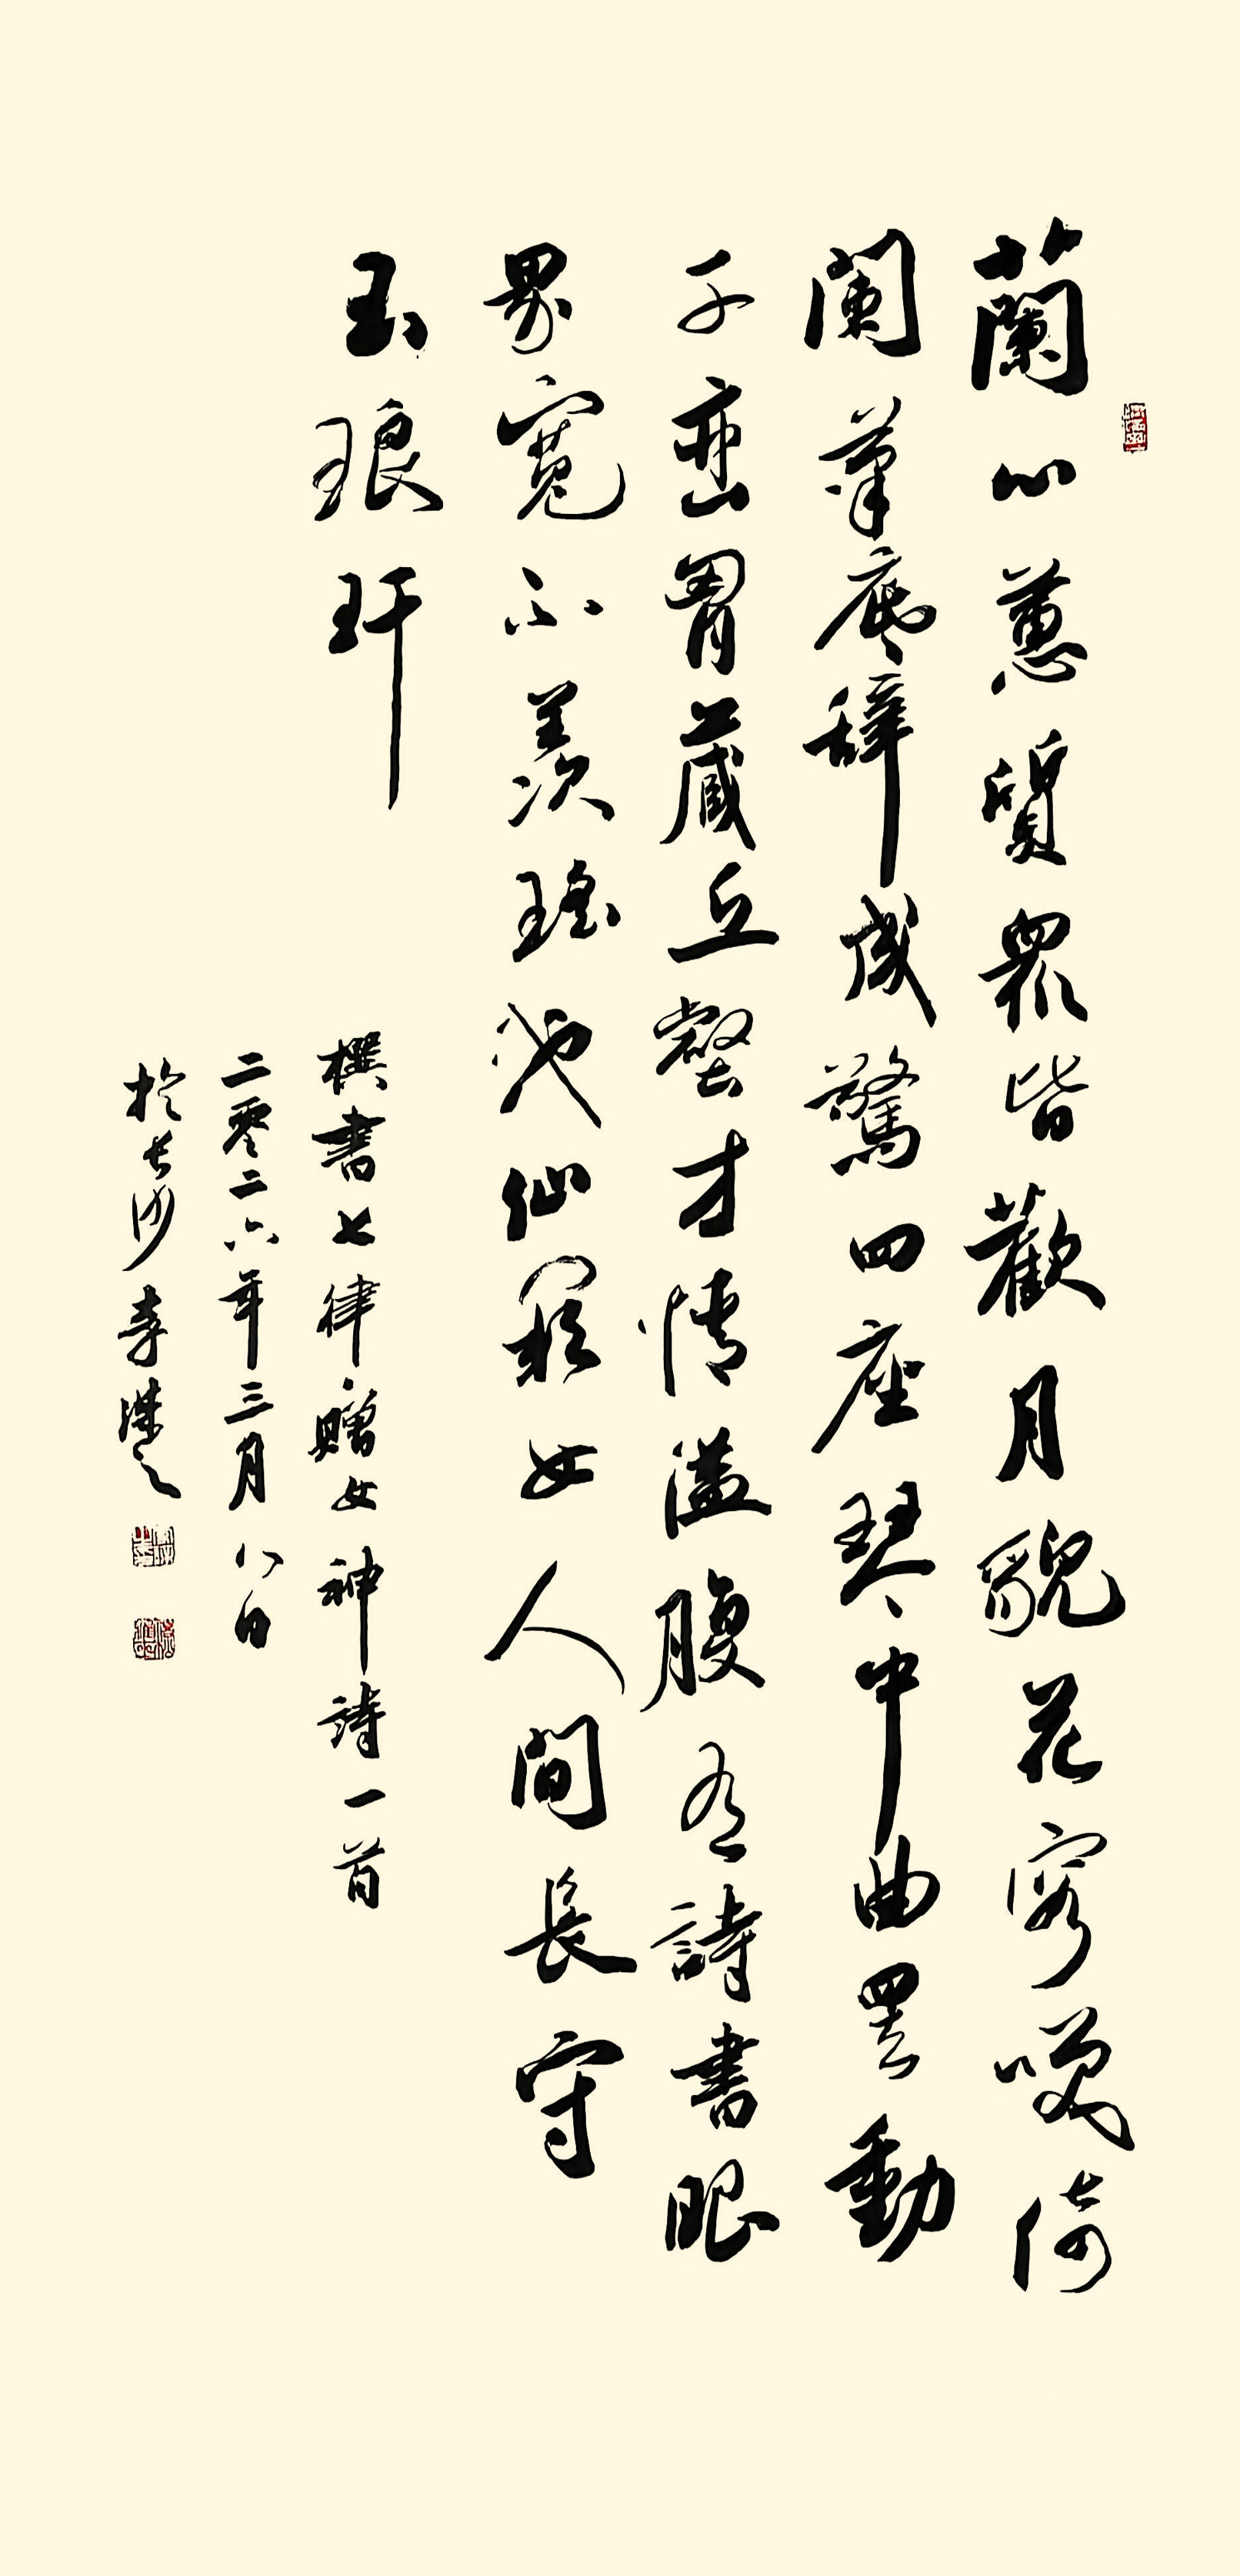 蘭心蕙質眾皆歡月貌花容咲倚
闌筆底辭成驚四座琴中曲罷動
千巒胷藏丘壑才情溢腹有詩書眼
界寬不羨瑤池仙闕女人間長守
玉琅玕
撰書七律贈女神詩一首
二零二六年三月八日
於長沙李